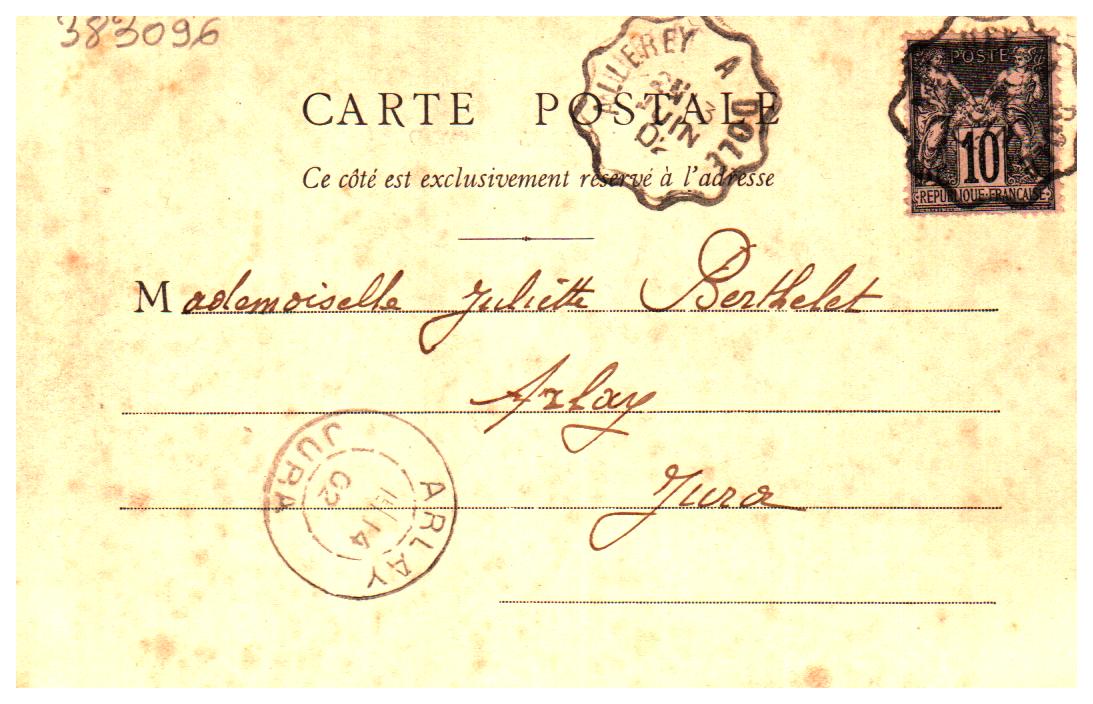 383096
ALLEREY A DOLE
CARTE POSTALE
POSTE
10
REPUBLIQUE FRANÇAISE
Ce côté est exclusivement réservé à l'adresse
Mademoiselle Juliette Berthelet
Arlay
Jura
ARLAY
14
02
JURA